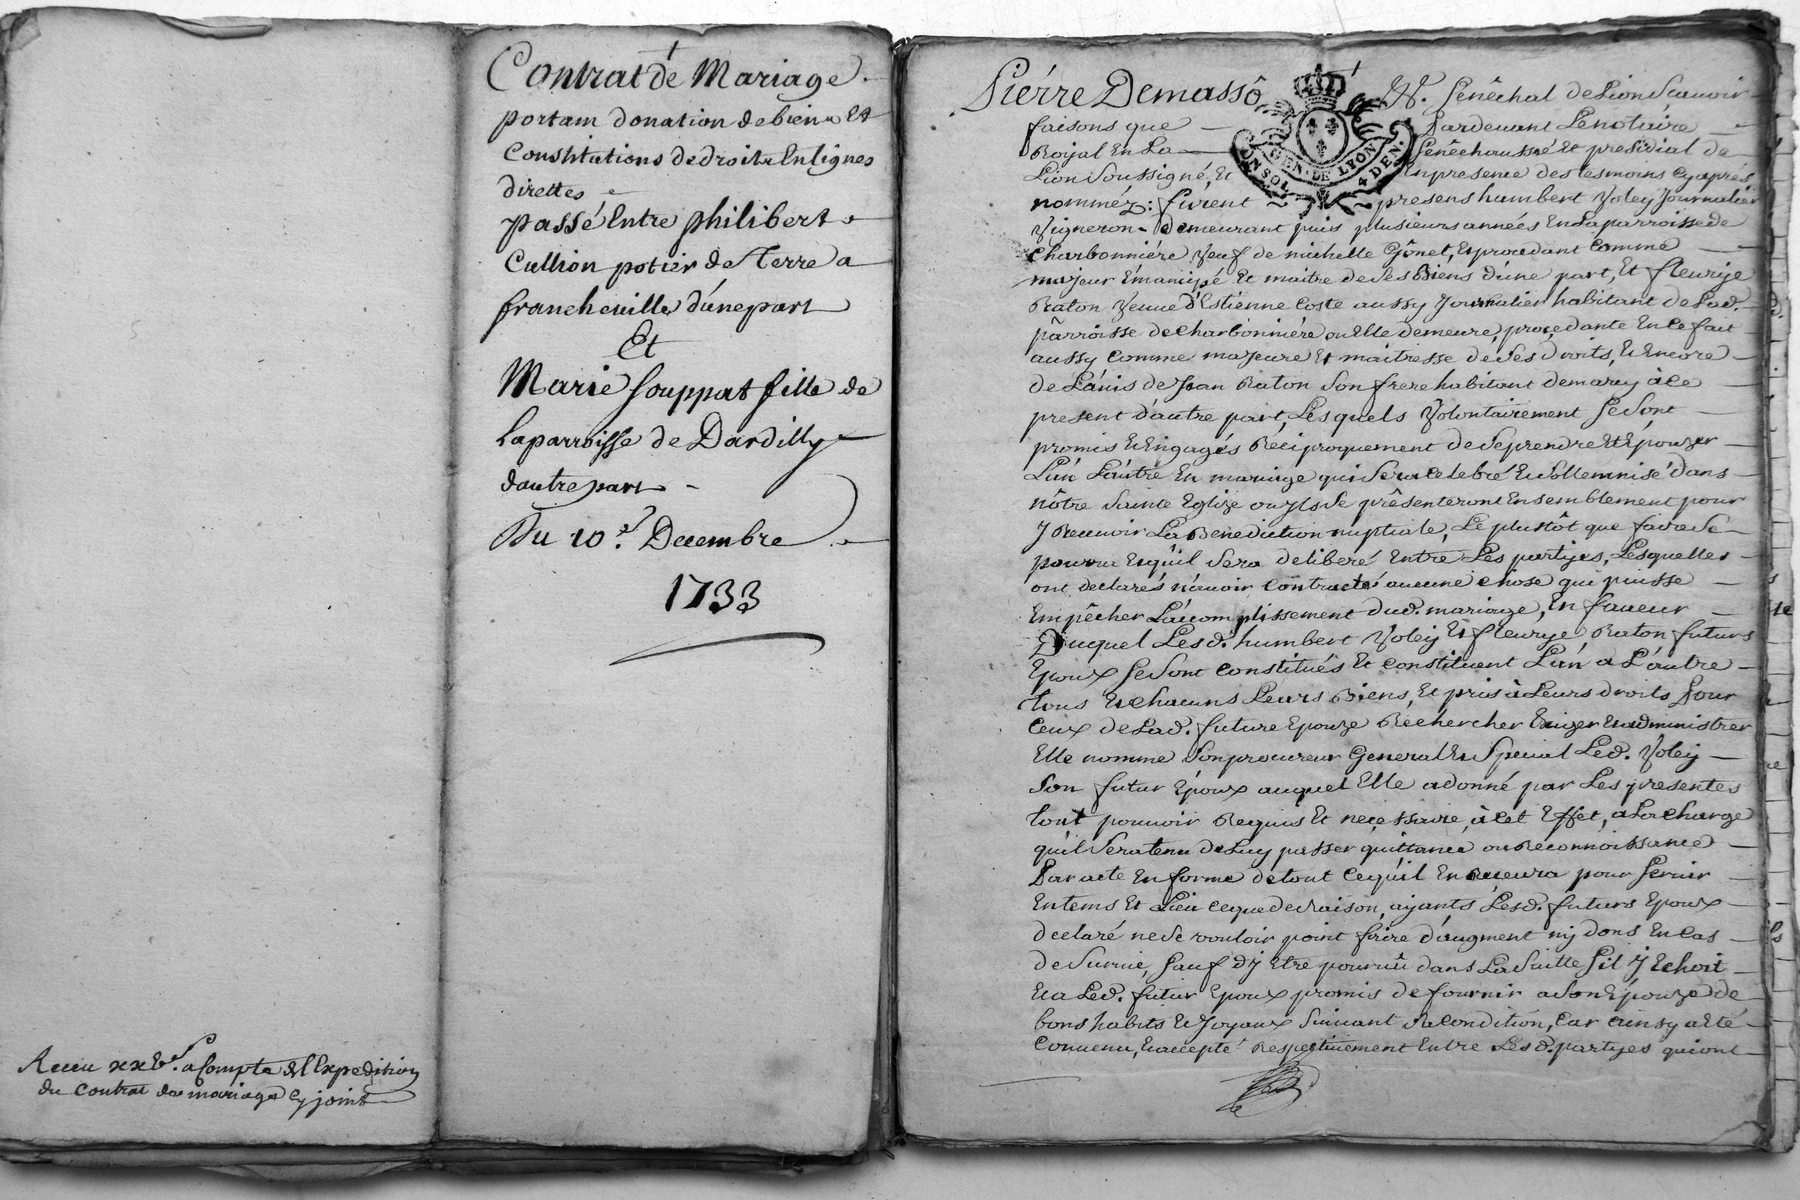 Contrat de Mariage
portam donation de biens Et
Constitutions de droits En lignes
direttes
passé Entre philibert
Cullion potier de Terre a
francheville d'une part
Et
Marie Souppat fille de
la parroisse de Dardilly
dautre part
Du 10e. Decembre
1733
Receu xxbs. a Compte de l'Expedition
du contrat de mariage cy joint
Piérre Demasso
Senéchal de Lion Scauoir
faisons que Pardeuant Le notaire
Royal En La Senêchaussé Et presidial de
GEN. DE LYON
UN SOL 4 DEN.
Lion Soussigné, Et En presence des tesmoins cy aprés
nommèz: furent presens humbert Voley Journalier
Vigneron demeurant puis plusieurs années En La parroisse de
Charbonniére Veuf de michelle Gônet, Et procedant Comme
majeur Emancipé Et maitre de ses Biens dúne part, Et fleurije
Raton Veuue d'Estienne Coste aussy Journalier habitant de Lad.
pârroisse de Charbonniére ou Elle demeure, procedante En ce fait
aussy Comme majeure Et maitresse de ses droits, Et Encore
de L'auis de Jean Raton son frere habitant de marcy à ce
present d'autre part, Lesquels Volontairement se sont
promis Et Engagés Reciproquement de se prendre Et Epouzer
L'un L'autre En mariage qui sera celebré Et sollemnisé dans
nôtre Sainte Eglize ou yls se prêsenteront Ensemblement pour
y Receuoir La Benediction nuptiale, Le plustôt que faire se
pourra Et qu'il sera deliberé Entre Les partyes, Lesquelles
ont declarés n'auoir Contracté aucune chose qui puisse
Empêcher L'accomplissement dud. mariage, En faueur
Duquel Lesd. humbert Voley Et fleurye Raton futurs
Epoux se sont constitués Et constituent L'un a L'autre
tous Et chacuns Leurs Biens, Et pris à Leurs droits pour
Ceux de Lad. future Epouze Rechercher Exiger Et administrer
Elle nomme son procureur General Et Special Led. Voley
son futur Epoux auquel Elle a donné par Les presentes
tout pouuoir Requis Et necessaire, à cet Effet, a La charge
qu'il sera tenu de Luy passer quittance ou Reconnoissance
Par acte En forme de tout ce qu'il En Receura pour seruir
En tems Et Lieu ce que de Raison, ayants Lesd. futurs Epoux
declaré ne se vouloir point faire d'augment nij dons En cas
de Suruie, sauf d'y Etre pourueu dans La suitte s'il y Echoit
Et a Led. futur Epoux promis de fournir a son Epouze de
bons habits Et Joyaux suiuant sa condition, Car ainsy a Eté
Conuenu, Et accepté Respectiuement Entre Lesd. partyes qui ont